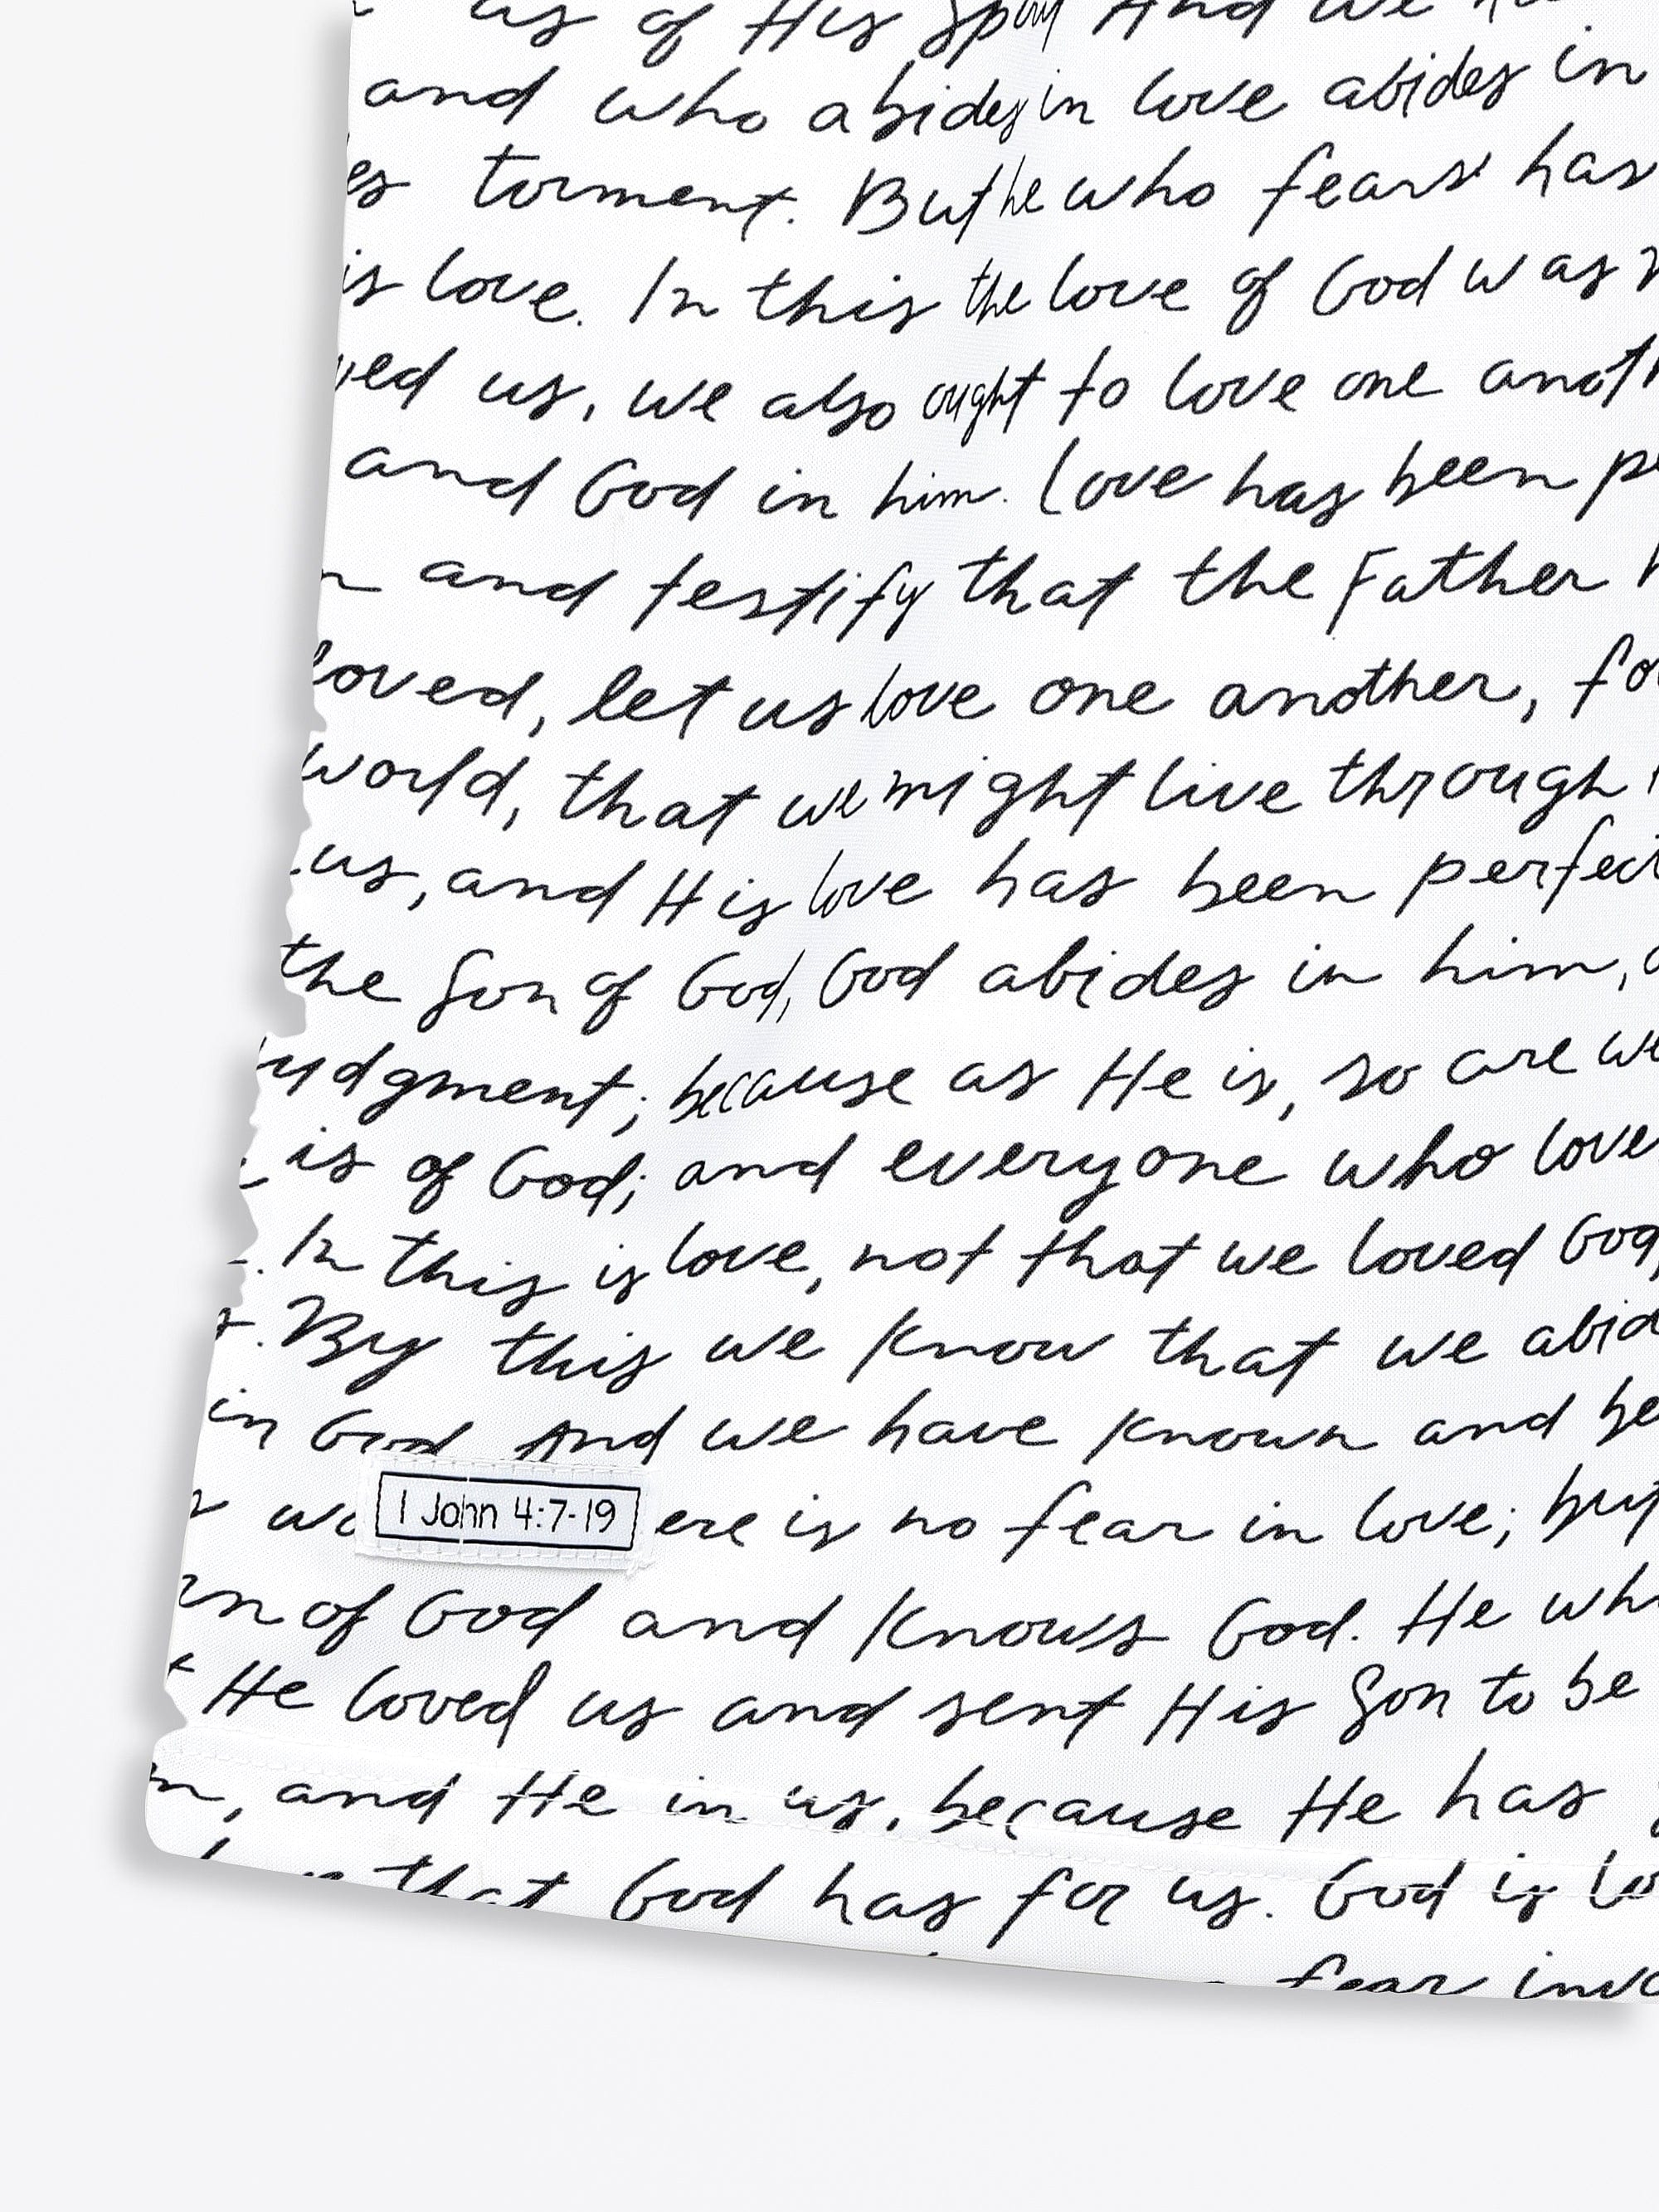 us of His Spirit And we
and who abides in love abides in
es torment. But he who fears has
is love. In this the love of God was
ved us, we also ought to love one anoth
and God in him. Love has been pe
and testify that the Father
loved, let us love one another, fo
world, that we might live through
us, and His love has been perfect
the Son of God, God abides in him,
udgment; because as He is, so are we
is of God; and everyone who love
. In this is love, not that we loved God,
. By this we know that we abid
in God And we have known and be
1 John 4:7-19
ere is no fear in love; but
rn of God and knows God. He who
t He loved us and sent His Son to be
m, and He in us, because He has
that God has for us. God is lo
fear invo